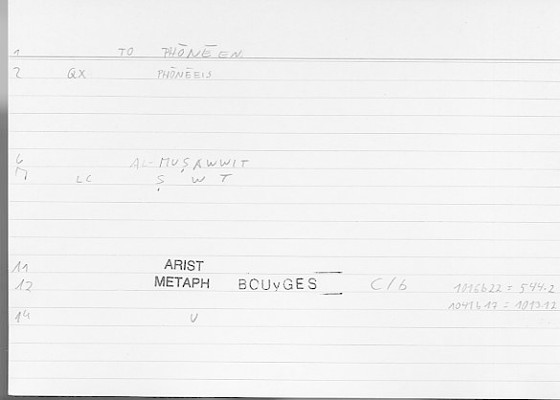 1 TO PHŌNĒEN
2 QX PHŌNĒEIS
6 AL-MUṢAWWIT
7 LC Ṣ W T
11 ARIST
12 METAPH BOUyGES C/b 1016b22 = 544.2
1041b17 = 1013.12
14 V